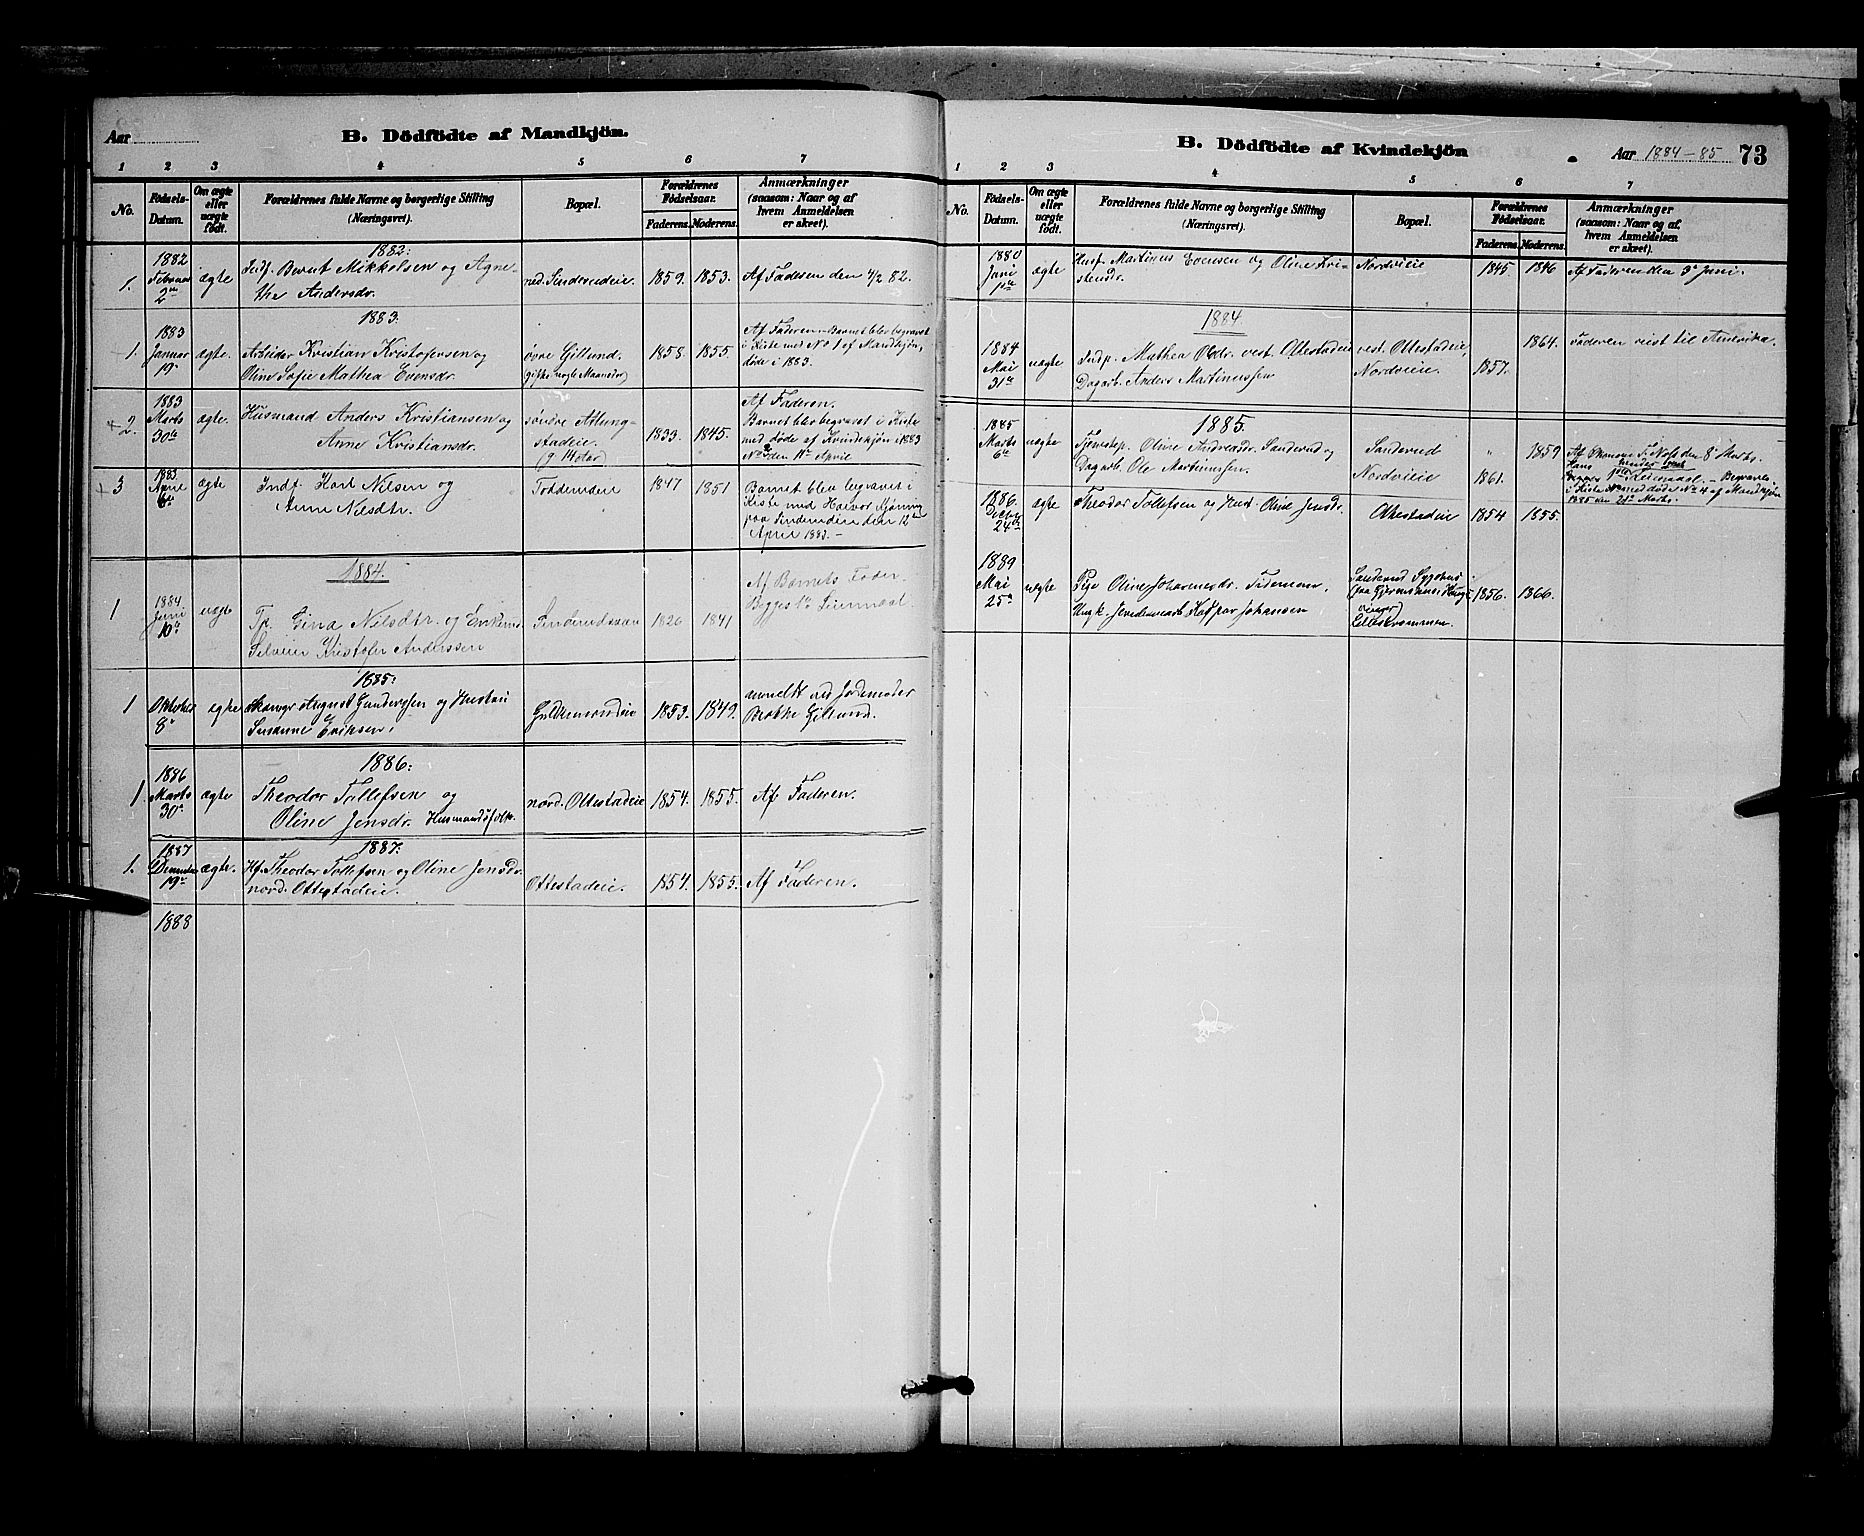 Aar
B. Dödfödte af Mandkjön.
1 2 3 4 5 6 7
No.
Födsels-
Datum.
Om ægte
eller
uægte
födt.
Forældrenes fulde Navne og borgerlige Stilling
(Næringsvei).
Bopæl.
Forældrenes
Födselsaar.
Faderens. Moderens.
Anmærkninger
(saasom: Naar og af
hvem Anmeldelsen
er skeet).
1882:
1.
1882
Februar
2
ægte
Indf. Bernt Mikkelsen og Agne-
the Andersdr.
ned. Sinderudeie.
1859. 1853.
Af Faderen den 4/2 82.
1883:
1.
1883
Januar
19
ægte.
Arbeider Kristian Kristofersen og
Oline Sofie Mathea Evensdr.
øvre Gillund.
1858. 1855.
Af Faderen. Barnet blev begravet
i Kiste med No 1 af Mandkjøn,
døde i 1883.
2.
1883
Marts
30te
ægte.
Husmand Anders Kristiansen og
Anne Kristiansdr.
søndre Atlung-
stadeie.
1833. 1845.
Af Faderen.
Barnet blev begravet i Kiste
med døde af Kvindekjøn i 1883
den 11te April
3
1883
April
6te
ægte
Indf. Karl Nilsen og
Anne Nilsdtr.
Toddemdeie
1847 1851
Barnet blev begravet i
Kiste med
paa Sinderudeie den 12te
April 1883.-
1884.
1
1884
Juni
10te
uægte
Tp. Gina Nilsdtr. og Enkem.
Kristofer Anderssen
1826 1841
Af Barnets Fader.
Begges 1te Leiermaal
1885:
1
Oktober
8
egte
August Gundersen og Hustru
Susanne Eriksen.
1853. 1849.
anmeldt ved Jordemoder
Gillund.
1886:
1.
1886
Marts
30
ægte
Theodor Tollefsen og
Oline Jensdr. Husmandsfolk.
nord. Ottestadeie
1854. 1855.
Af Faderen.
1887:
1.
1887
December
19
ægte.
Hf. Theodor Tollefsen og Oline Jensdr.
nord. Ottestadeie.
Ottestadeie.
1854. 1855.
Af Faderen.
1888
B. Dödfödte af Kvindekjön
Aar 1884-85 73
1 2 3 4 5 6 7
No.
Födsels-
Datum.
Om ægte
eller
uægte
födt.
Forældrenes fulde Navne og borgerlige Stilling
(Næringsvei).
Bopæl.
Forældrenes
Födselsaar.
Faderens. Moderens.
Anmærkninger
(saasom: Naar og af
hvem Anmeldelsen
er skeet).
1880
Juni
1ste
ægte
Indf. Martinus Evensen og Oline Kri-
stensdr.
Nordvieie
1845. 1846
Af Faderen den 3 Juni.
1884
1884
Mai
31te
uægte
Indp. Mathea Olsdr. vest. Ottestadeie
Dagarb. Anders Martinussen
vest. Ottestadeie,
Nordvieie.
1857. 1864.
Faderen reist til Amerika.
1885.
1885
Marts
6te
uægte
Tjenestep. Oline Andreasdr. Sanderud og
Dagarb. Ole Martinussen.
Sanderud
Nordvieie
" 1859
1861.
den 8 Marts.
Leiermaal. - Begravet
i Kiste med døde No 4 af Mandkjøn
1885 den Marts.
1886.
Decbr
24de
ægte
Theodor Tollefsen og Hust. Oline Jensdr.
Ottestadeie
1854 1855.
1889
Mai
25
uægte
Pige Oline Johannesdr. Tidemann.
Ungk. Kaspar Johansen
Sanderud Sygehus
1856. 1866.